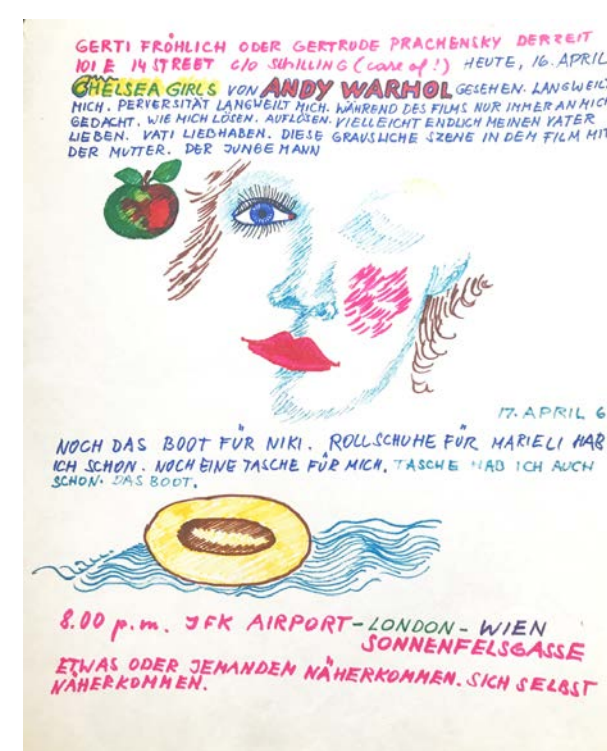 GERTI FRÖHLICH ODER GERTRUDE PRACHENSKY DERZEIT
101 E 14 STREET c/o SCHILLING (care of!) HEUTE, 16. APRIL
CHELSEA GIRLS VON ANDY WARHOL GESEHEN. LANGWEILT
MICH. PERVERSITÄT LANGWEILT MICH. WÄHREND DES FILMS NUR IMMER AN MICH
GEDACHT. WIE MICH LÖSEN. AUFLÖSEN. VIELLEICHT ENDLICH MEINEN VATER
LIEBEN. VATI LIEBHABEN. DIESE GRAUSLICHE SZENE IN DEM FILM MIT
DER MUTTER. DER JUNGE MANN
17. APRIL 6
NOCH DAS BOOT FÜR NIKI. ROLLSCHUHE FÜR MARIELI HAB
ICH SCHON. NOCH EINE TASCHE FÜR MICH. TASCHE HAB ICH AUCH
SCHON. DAS BOOT.
8.00 p.m. JFK AIRPORT-LONDON-WIEN
SONNENFELSGASSE
ETWAS ODER JEMANDEM NÄHERKOMMEN. SICH SELBST
NÄHERKOMMEN.